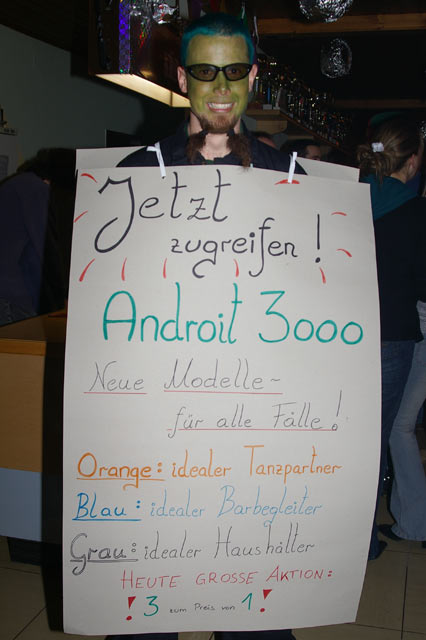 Jetzt
zugreifen!
Androit 3000
Neue Modelle~
für alle Fälle!
Orange: idealer Tanzpartner
Blau: idealer Barbegleiter
Grau: idealer Haushälter
HEUTE GROSSE AKTION:
! 3 zum Preis von 1!